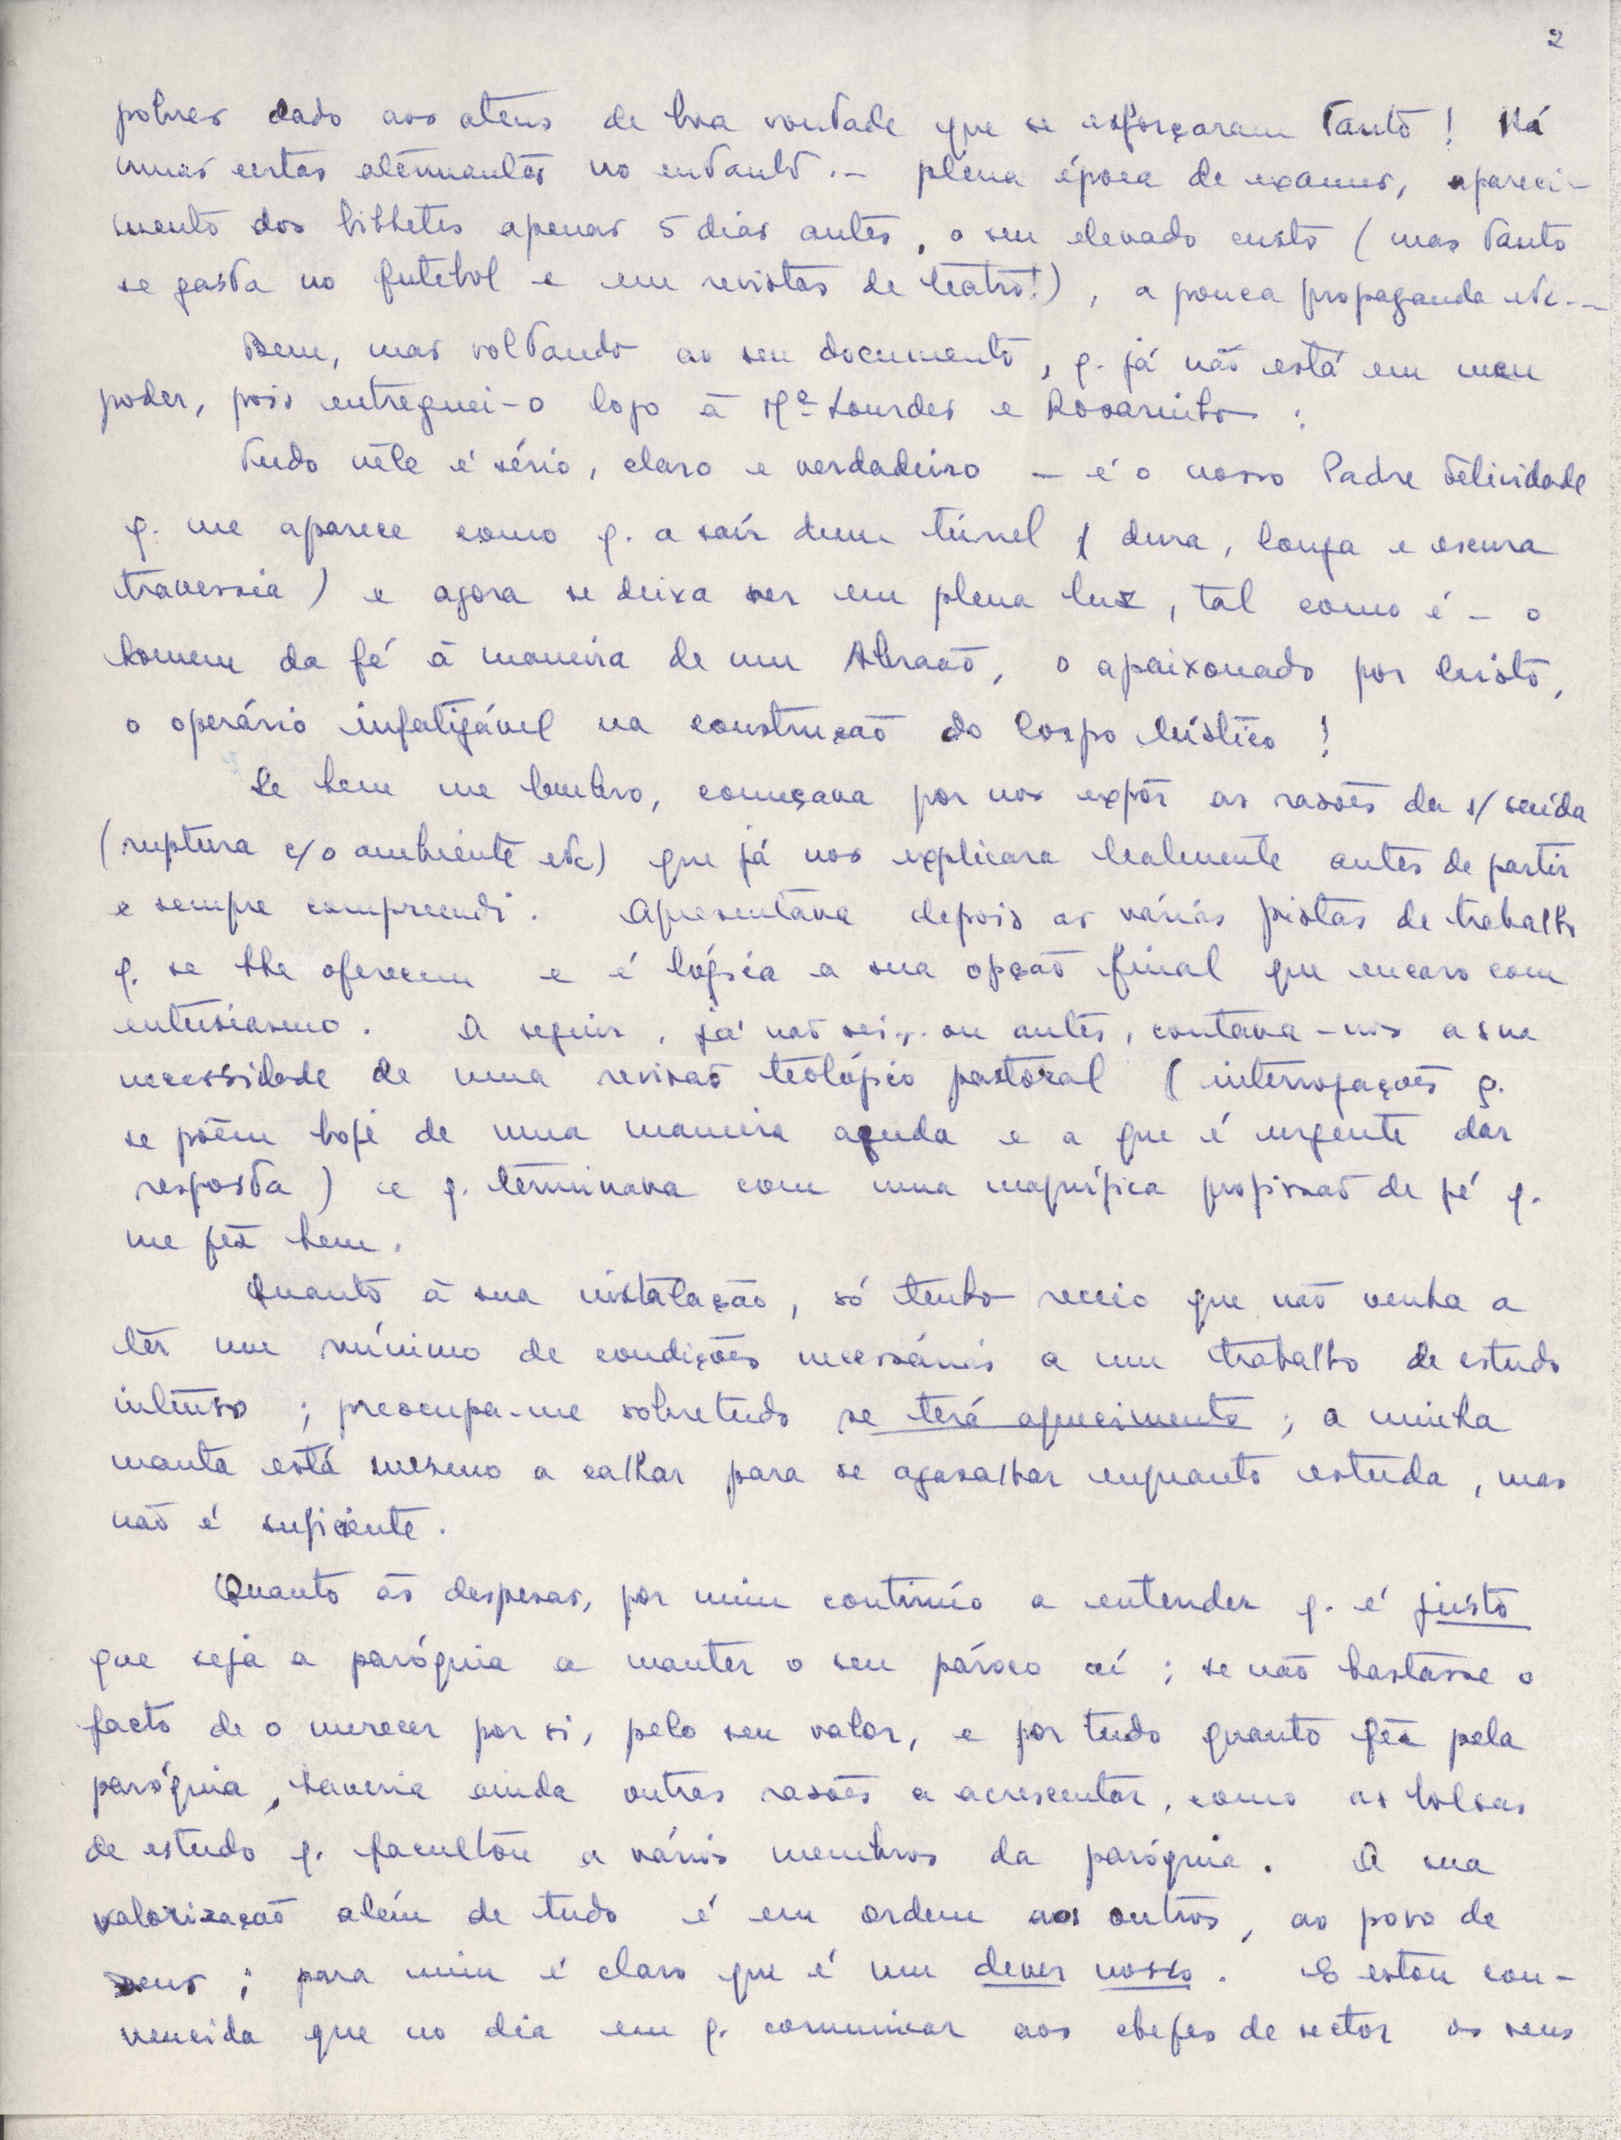 2
pobres dado aos ateus de boa vontade que se esforçaram tanto! Há
umas certas atenuantes no entanto .- plena época de exames, apareci-
mento dos bilhetes apenas 5 dias antes, o seu elevado custo (mas tanto
se gasta no futebol e em revistas de teatro!), a pouca propaganda etc--
Bem, mas voltando ao seu documento, q. já não está em meu
poder, pois entreguei-o logo à Mª Lourdes e Rosarinho:
Tudo nêle é sério, claro e verdadeiro - é o nosso Padre Felicidade
q. me aparece como q. a saír dum túnel (dura, longa e escura
travessia) e agora se deixa ver em plena luz, tal como é - o
homem da fé à maneira de um Abraão, o apaixonado por Cristo,
o operário infatigável na construção do Corpo Místico!
Se bem me lembro, começava por nos expôr as razões da s/ saída
(ruptura c/o ambiente etc) que já nos explicara lealmente antes de partir
e sempre compreendi. Apresentava depois as várias pistas de trabalho
q. se lhe oferecem e é lógica a sua opção final que encaro com
entusiasmo. A seguir, já não sei, ou antes, contava-nos a sua
necessidade de uma revisão teológico pastoral (interrogações q.
se põem hoje de uma maneira aguda e a que é urgente dar
resposta) e q. terminava com uma magnífica profissão de fé q.
me fêz bem.
Quanto à sua instalação, só tenho receio que não venha a
ter um mínimo de condições necessárias a um trabalho de estudo
intenso; preocupa-me sobretudo se terá aquecimento; a minha
manta está mesmo a calhar para se agasalhar enquanto estuda, mas
não é suficiente.
Quanto às despesas, por mim continúo a entender q. é justo
que seja a paróquia a manter o seu pároco aí; se não bastasse o
facto de o merecer por si, pelo seu valor, e por tudo quanto fêz pela
paróquia, haveria ainda outras razões a acrescentar, como as bolsas
de estudo q. facultou a vários membros da paróquia. A sua
valorização além de tudo é em ordem aos outros, ao povo de
Deus; para mim é claro que é um dever nosso. E estou con-
vencida que no dia em q. comunicar aos chefes de sector os seus